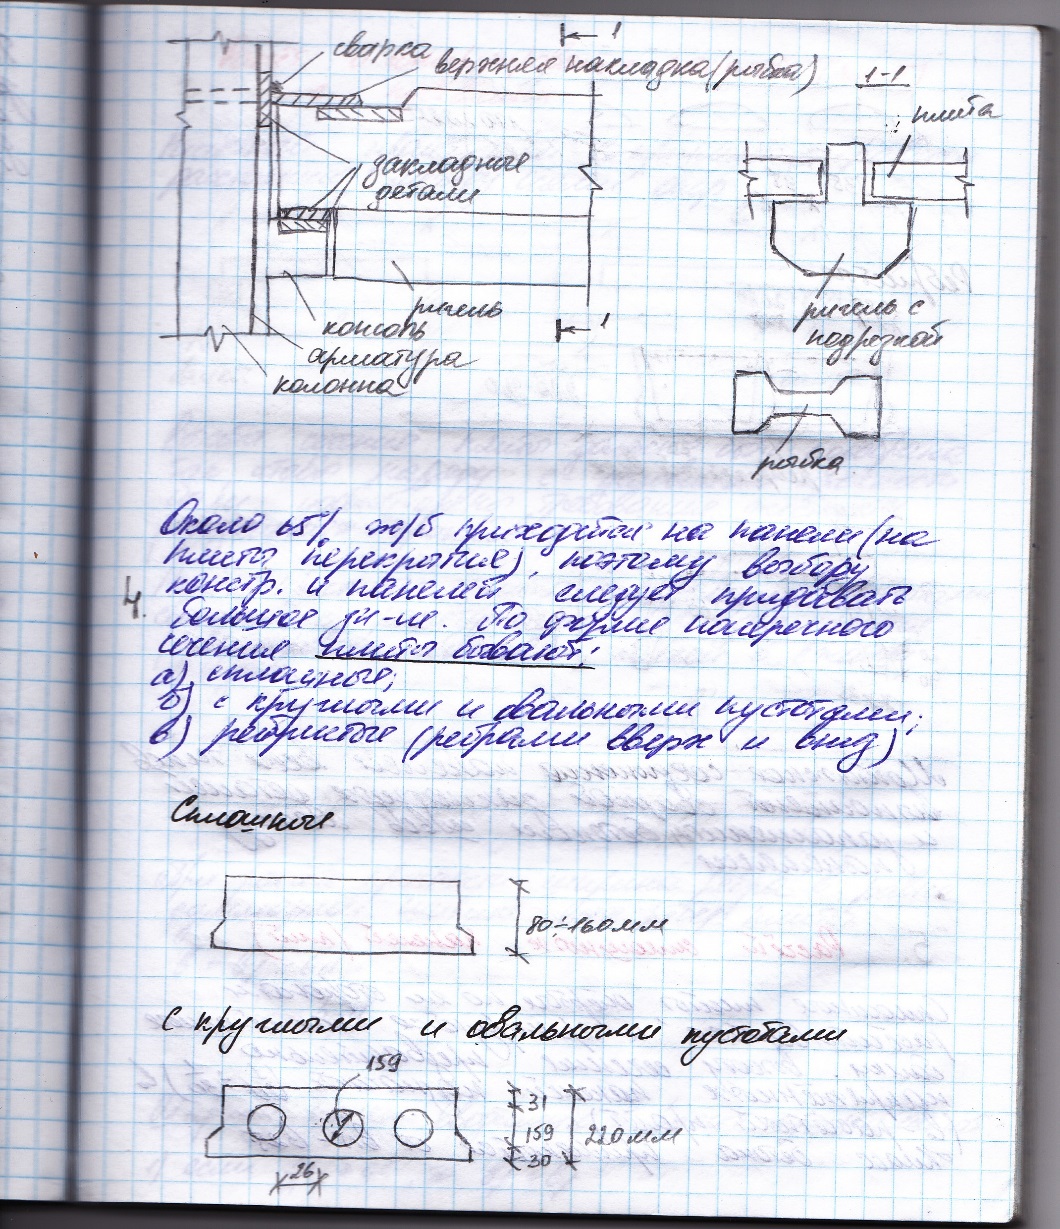 1
сварка
верхняя накладка (рыбка)
1-1
плита
закладные
детали
ригель
консоль
арматура
колонна
1
ригель с
подрезкой
рыбка
Около 65% ж/б приходится на панели (на
плиты перекрытия), поэтому выбору
констр. и панелей следует придавать
4.
большое зн-ие. По форме поперечного
сечения плиты бывают:
а) сплошные;
б) с круглыми и овальными пустотами;
в) ребристые (ребрами вверх и вниз)
Сплошные
80÷160мм
С круглыми и овальными пустотами
159
31
159
30
220мм
26